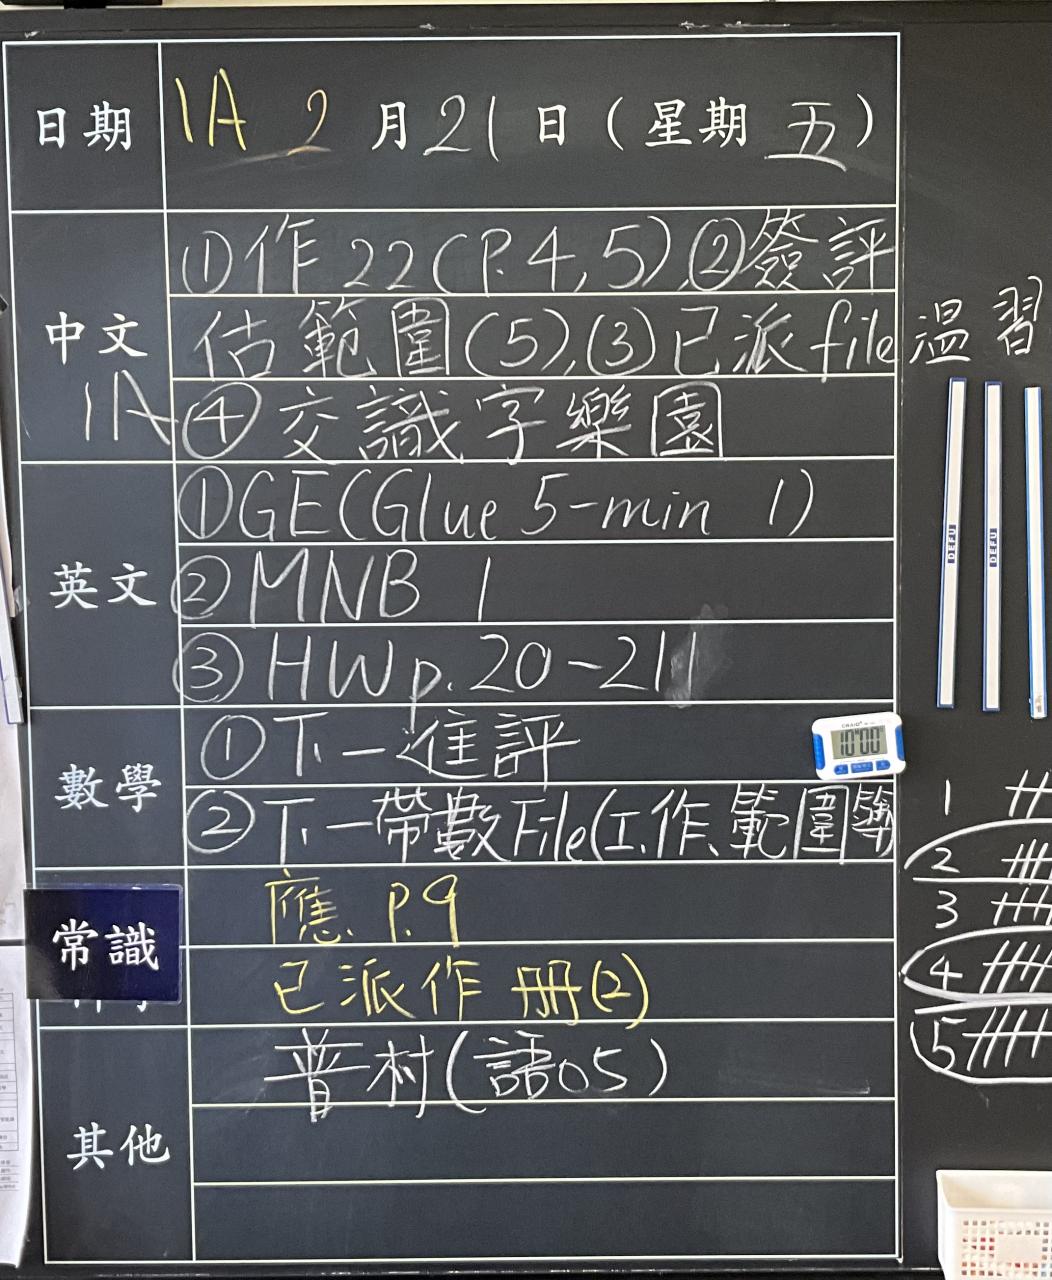 日期 1A 2月21日(星期五)
中文 1A
①作22(P.4,5),②簽評
估範圍(5),③已派file
④交識字樂園
溫習
英文
①GE(Glue 5-min 1)
②MNB 1
③HWp.20-21
數學
①下一進評
②下一帶數File(工作、範圍簿
10'00
常識
應 P.9
已派作冊(2)
其他
普村(語05)
1
2
3
4
5